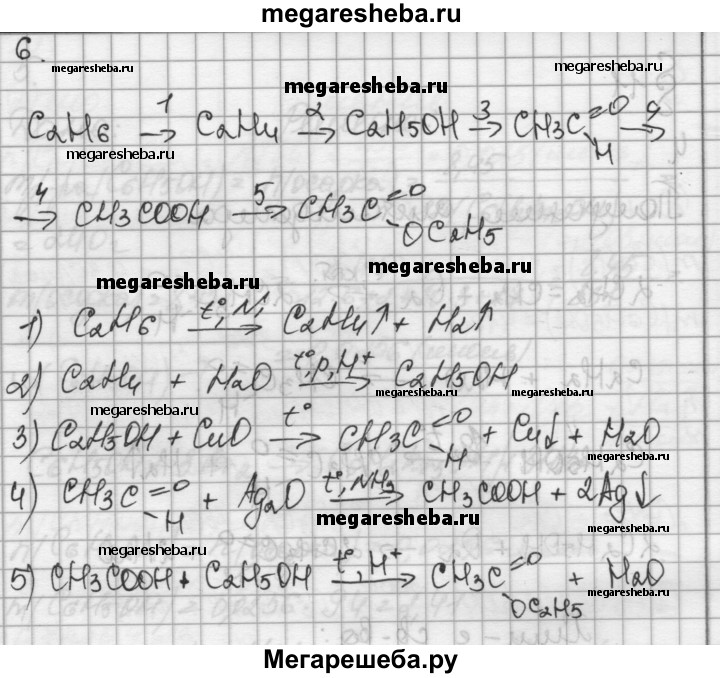 megaresheba.ru
6.
megaresheba.ru
megaresheba.ru
megaresheba.ru
C2H6 →1 C2H4 →2 C2H5OH →3 CH3C=O →4
H
megaresheba.ru
→4 CH3COOH →5 CH3C=O
OC2H5
megaresheba.ru
megaresheba.ru
1) C2H6 t°, Ni → C2H4↑ + H2↑
2) C2H4 + H2O t°,p,H+ → C2H5OH
megaresheba.ru
megaresheba.ru
3) C2H5OH + CuO t° → CH3C=O + Cu↓ + H2O
H
megaresheba.ru
4) CH3C=O + Ag2O t°, NH3 → CH3COOH + 2Ag↓
H
megaresheba.ru
megaresheba.ru
megaresheba.ru
5) CH3COOH + C2H5OH t°, H+ → CH3C=O + H2O
OC2H5
megaresheba.ru
Мегарешеба.ру